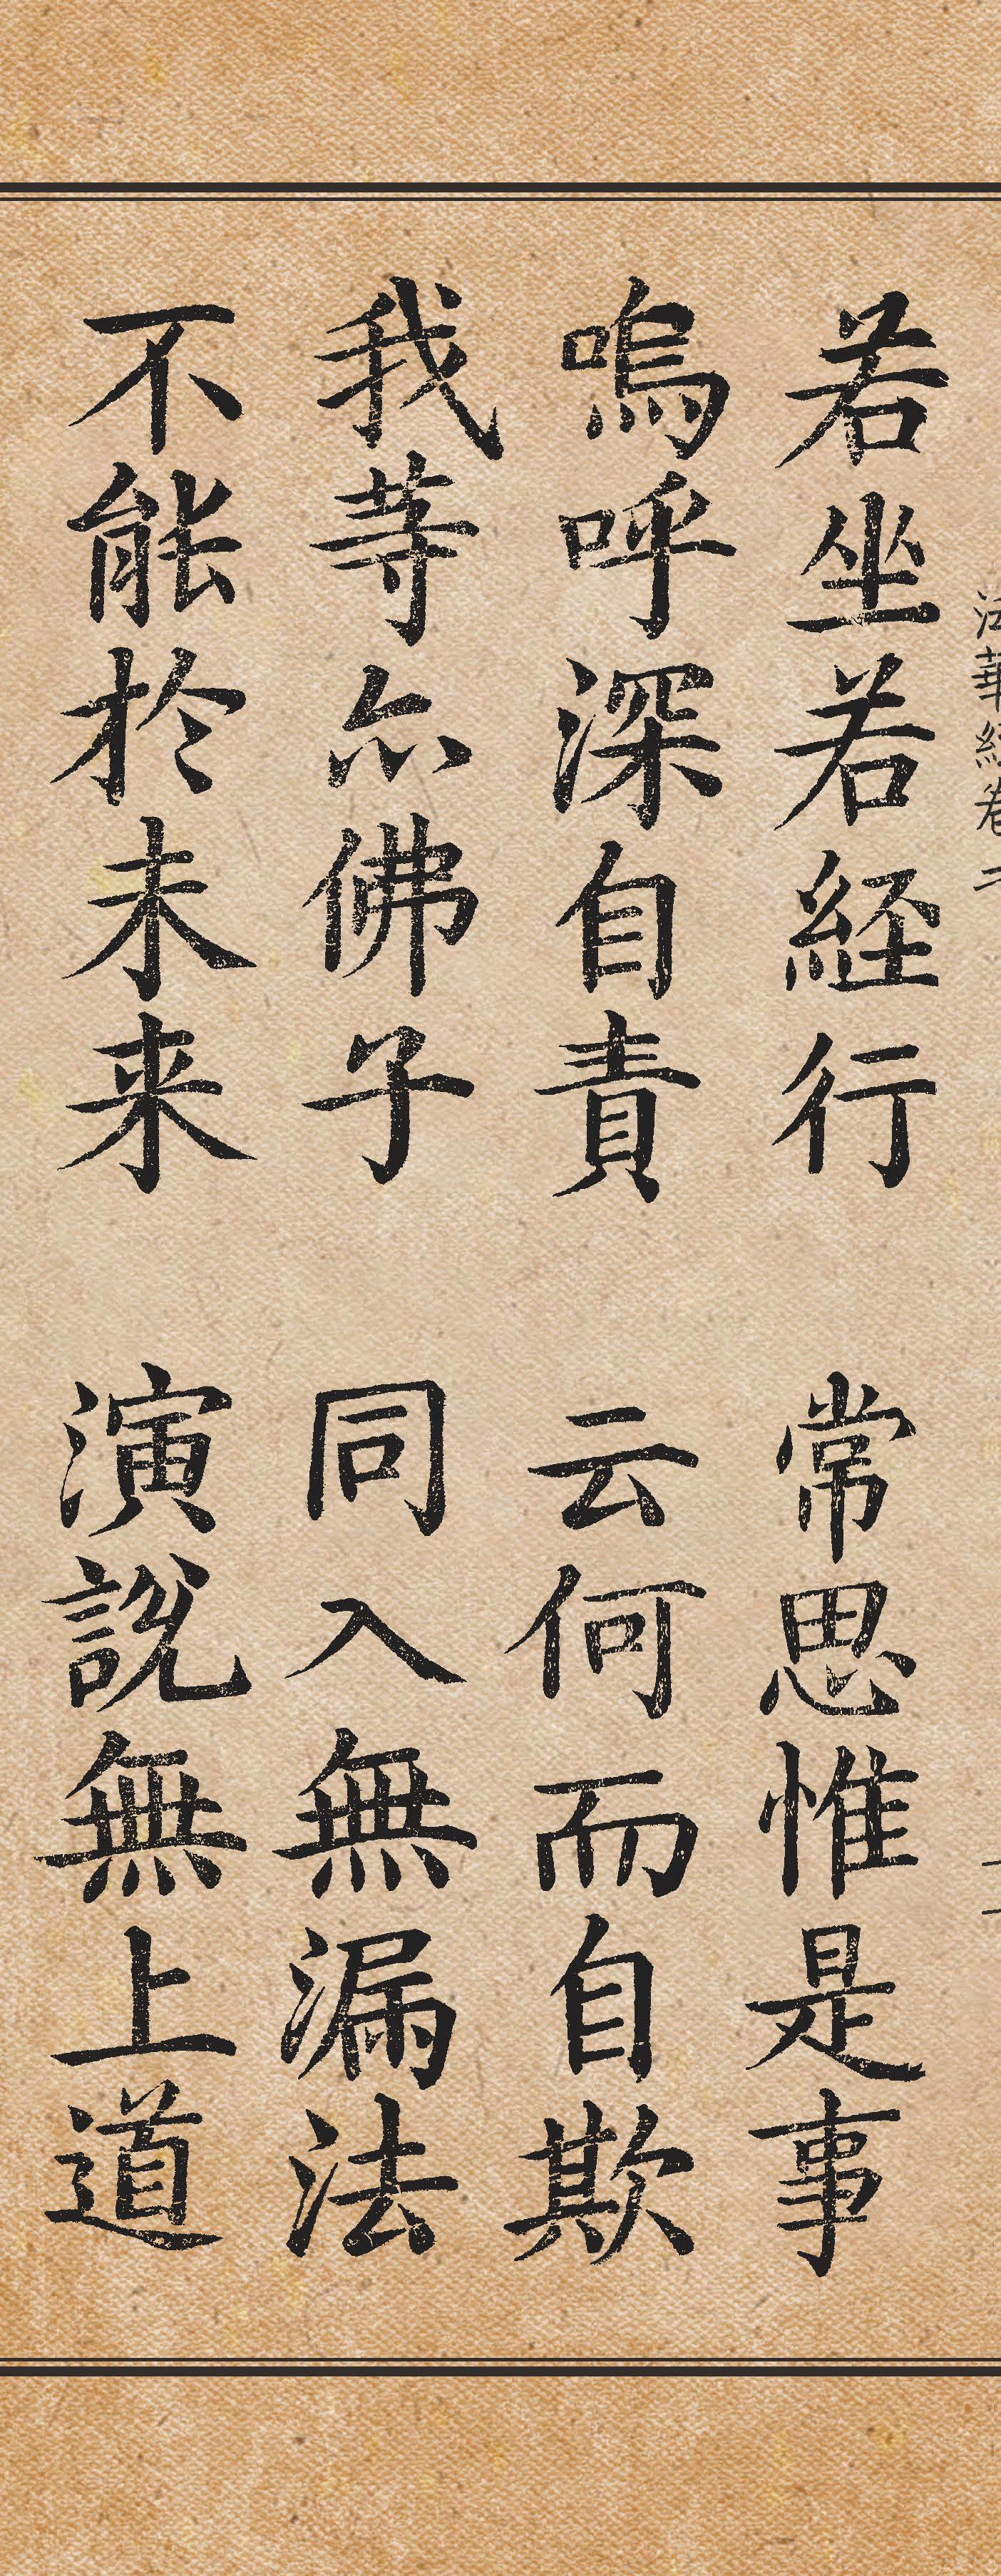 法華経巻二
若坐若経行　常思惟是事
嗚呼深自責　云何而自欺
我等亦佛子　同入無漏法
不能於未来　演説無上道